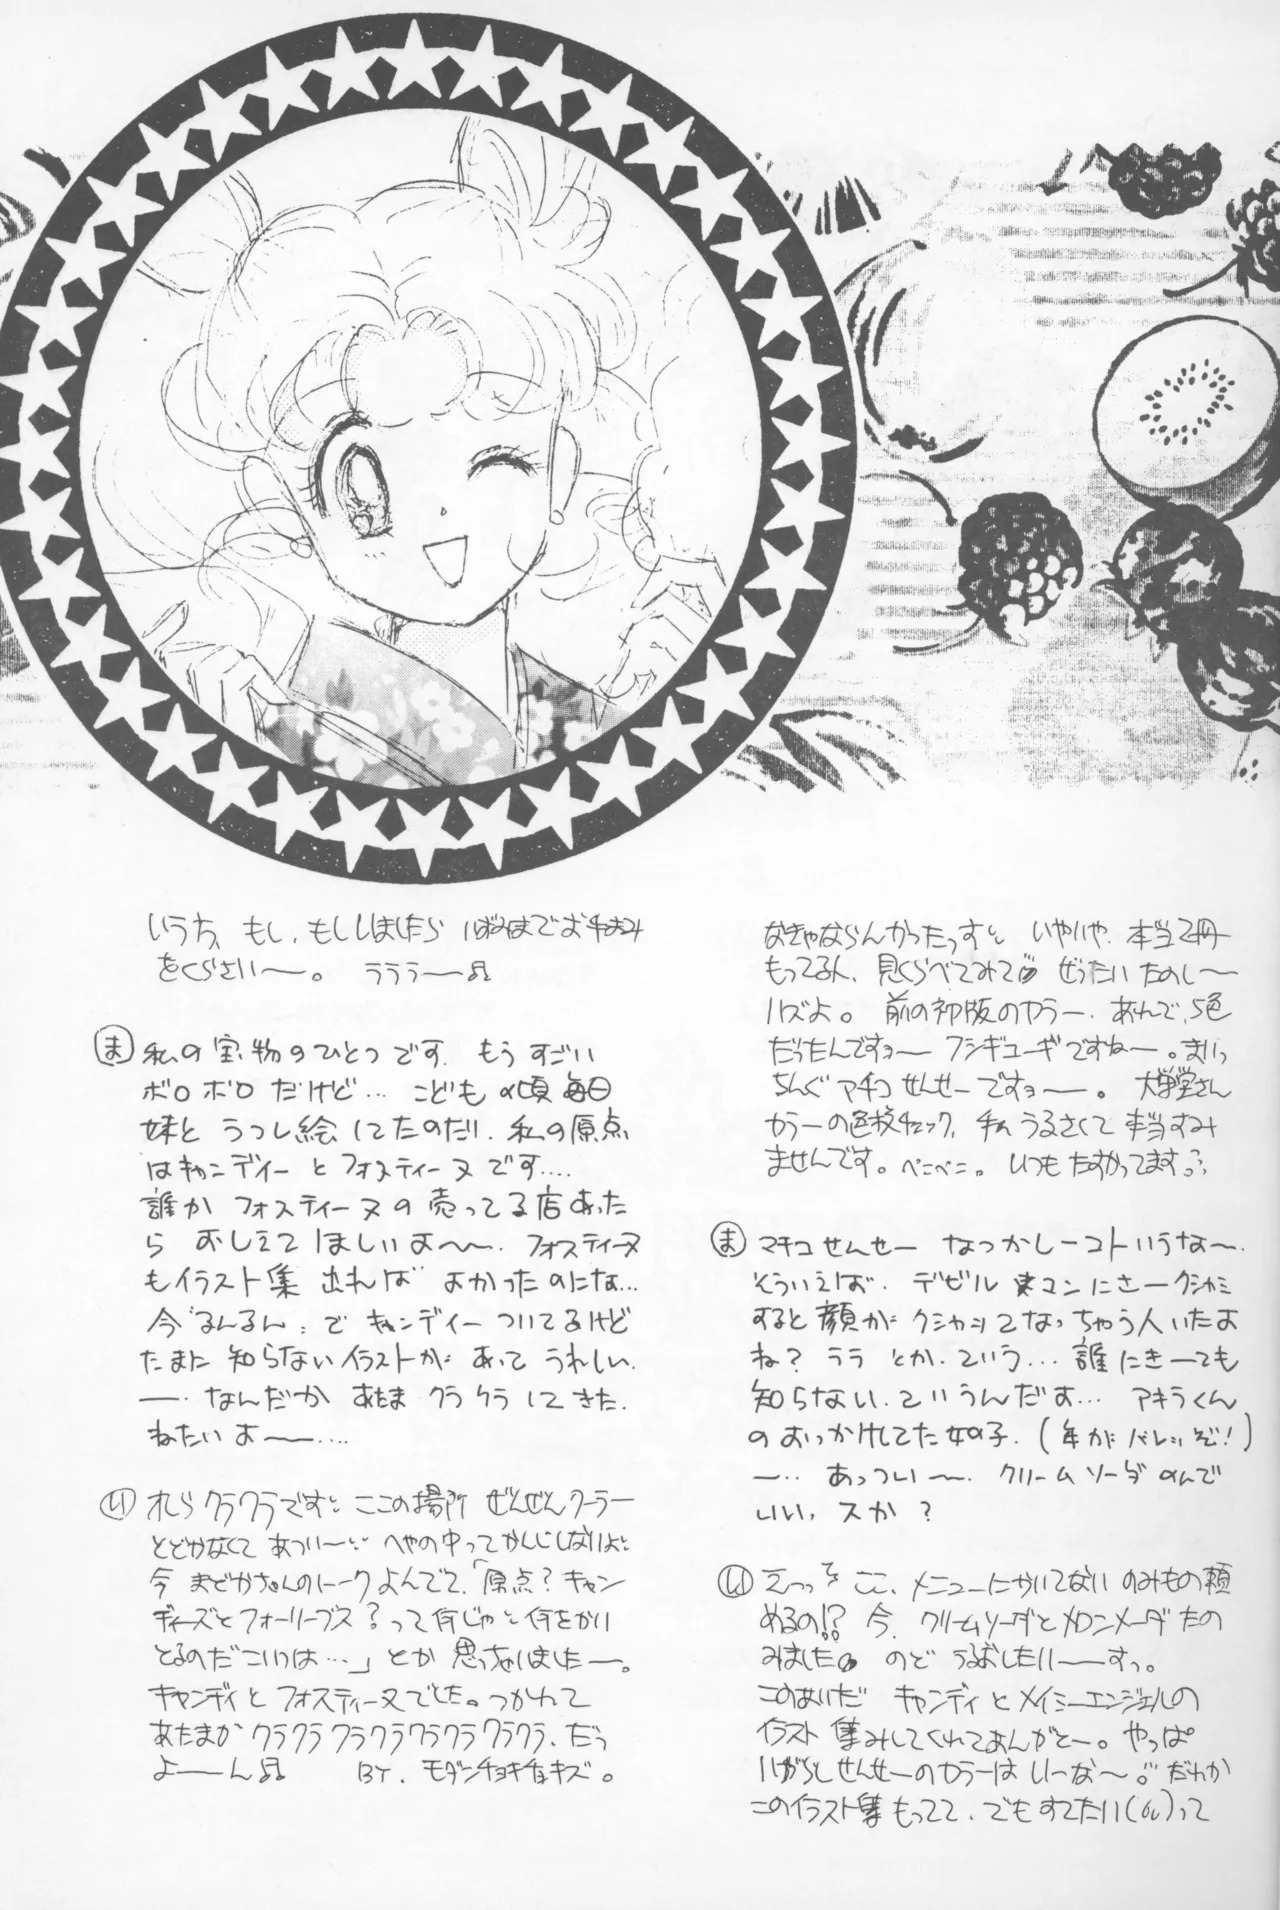 いうち、もし、もししましたら いばみまでお手まみ
をくらさい〜。 ラララ〜♫
ま 私の宝物のひとつです。もう すごい
ボロボロ だけど… こどもの頃毎日
妹と うつし絵してたのだ!! 私の原点
はキャンディーとフォスティーヌです….
誰か フォスティーヌの売ってる店あった
ら おしえて ほしいよ〜〜. フォスティーヌ
もイラスト集 出れば よかったのにな…
今“るんるん„で キャンディーついてるけど
たまに 知らないイラストが あって うれしい.
ー‥ なんだか あたま クラクラしてきた.
ねたいよ〜〜….
い オレら クラクラです ここの場所 ぜんぜんクーラー
とどかなくて あつい〜 へやの中ってかんじしないよ
今 まどかちゃんのトークよんでて、「原点? キャン
ディーズとフォーリーブス? って何じゃと何をかい
とるのだこいつは…」とか 思っちゃいましたー。
キャンディとフォスティーヌでした。つかれて
あたまが クラクラクラクラクラクラクラクラ、だう
よーーん♫ BY. モダンチョキチョキズ。
なきゃならんかったっすい いやいや、本当2冊
もってる人、見くらべてみて ぜったい たのしー
ハズよ。 前の初版のカラー、あんで、5色
だったんですョー フシギユーギですねー。まいっ
ちんぐ マチコ せんせーですョー。 大学堂さん
カラーの色校チェック、私 うるさくて 本当すみ
ませんです。ぺこぺこ。 いつも たすかってます。
ま マチコせんせー なつかしーコトいうな〜.
そういえば. デビル マンにさークシャミ
すると顔が クシャッ てなっちゃう人いたよ
ね? ララ とか. ていう… 誰にきーても
知らない. ていうんだよ… アキラくん
のおっかけしてた女の子. (年がバレッぞ!)
ー‥ あっつい〜. クリームソーダのんで
いい、スか?
い えっっ ここ、メニューにかいてない のみもの頼
めるの!? 今、クリームソーダとメロンメーダ たの
みました のど うるおしたいーーすっ。
このあいだ キャンディとメイミーエンジェルの
イラスト集みしてくれてあんがとー。やっぱ
いがらしせんせーのカラーは いーな〜。だれか
このイラスト集 もってて、でもすてたい って